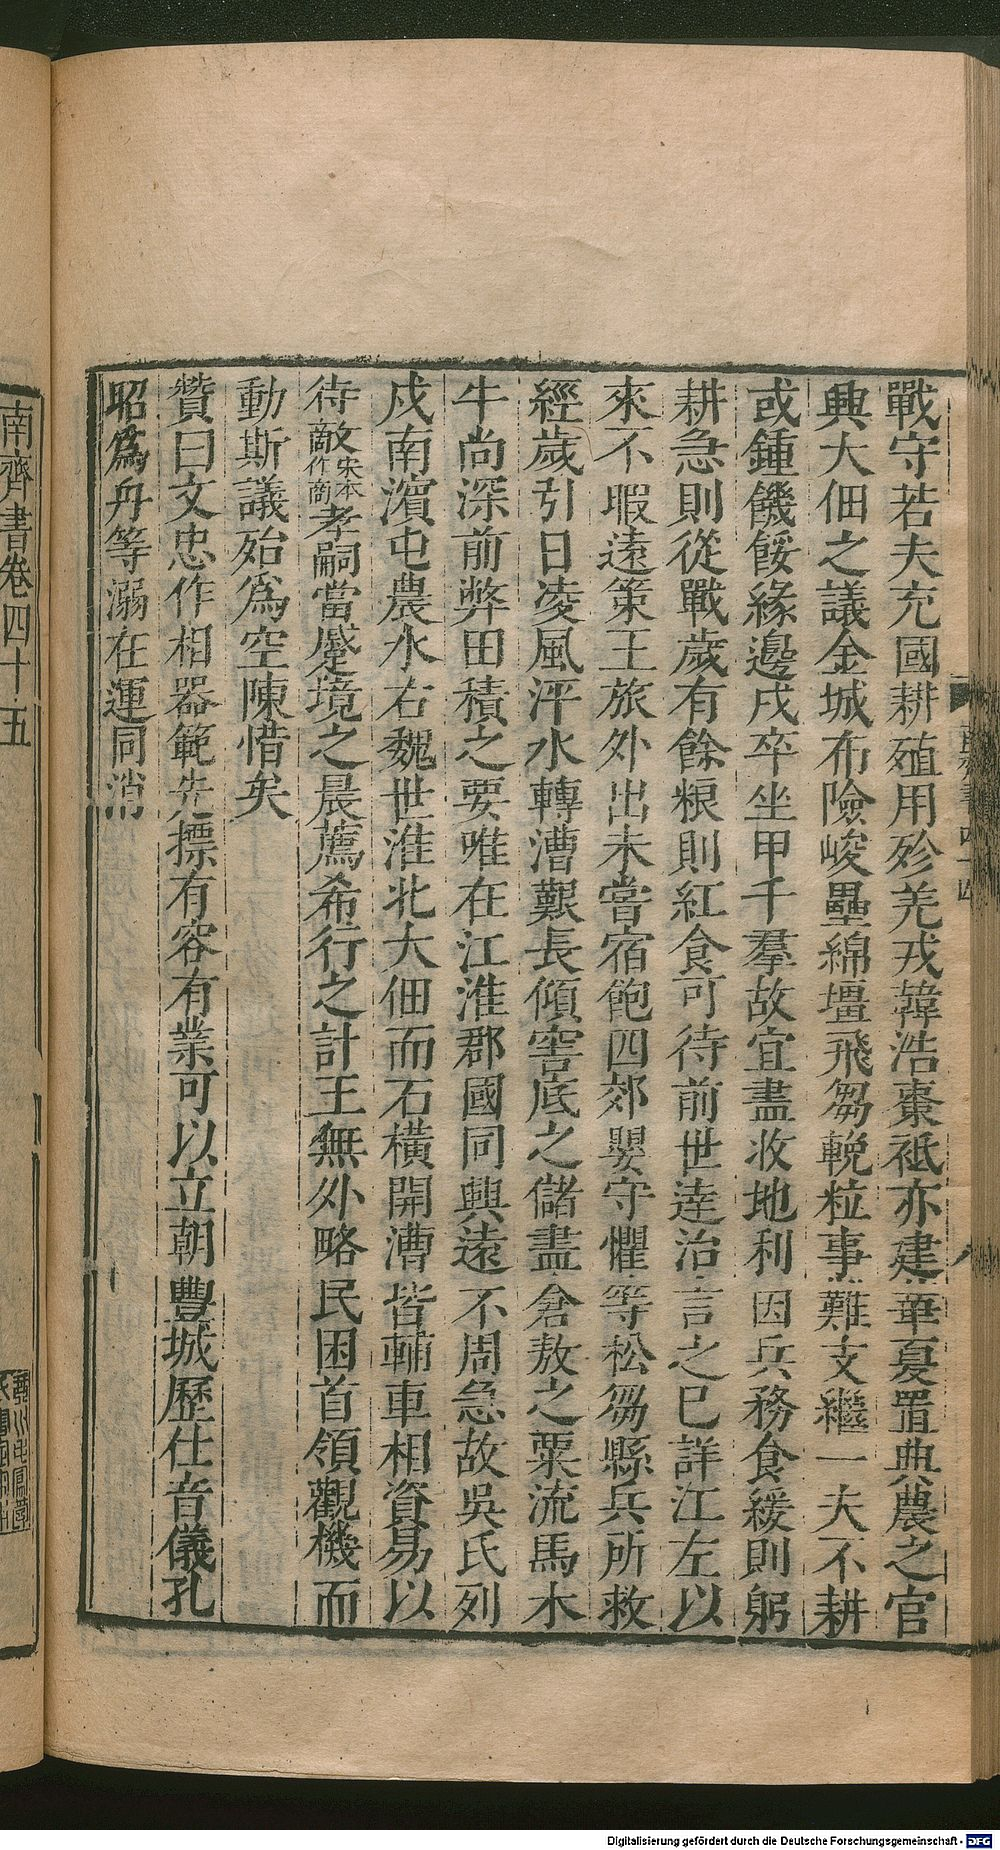 戰守若夫充國耕殖用殄羌戎韓浩棗祗亦建華夏置典農之官
興大佃之議金城布險峻壘綿壃飛芻輓粒事難支繼一夫不耕
或鍾饑餒緣邊戍卒坐甲千羣故宜盡收地利因兵務食緩則躬
耕急則從戰歲有餘粮則紅食可待前世達治言之巳詳江左以
來不暇遠策王旅外出未嘗宿飽四郊嬰守懼等松芻縣兵所救
經歲引日凌風泙水轉漕艱長傾窖底之儲盡倉敖之粟流馬木
牛尚深前弊田積之要唯在江淮郡國同興遠不周急故吳氏列
戍南濵屯農水右魏世淮北大佃而石橫開漕皆輔車相資易以
待敵宋本作商孝嗣當蹙境之晨薦希行之計王無外略民困首領觀機而
動斯議殆爲空陳惜矣
贊曰文忠作相器範先摽有容有業可以立朝豐城歷仕音儀孔
昭爲舟等溺在運同消
南齊書卷四十五
Digitalisierung gefördert durch die Deutsche Forschungsgemeinschaft - DFG